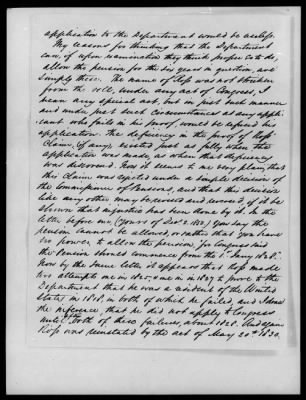 application to the Department would be useless.
My reasons for thinking that the Department
can, if upon examination they think proper to do so,
allow the pension for the six years in question, are
simply these. The name of Ross was not stricken
from the roll, under any act of Congress, I
mean any special act, but in just such manner
and under just such circumstances as any appli-
cant who fails in his proof, would be refused his
application. The deficiency in the proof of Ross'
Claim, (if any) existed just as fully when the
application was made, as when that deficiency
was discovered. Now it seems to me very plain, that
this claim was rejected under a simple decision of
the Commissioner of Pensions, and that this decision
like any other may be reversed if it be
shown that injustice has been done by it. In the
letter before me, (yours of Dec. 1851) you say the
pension cannot be allowed, or rather that you have
no power, to allow the pension, for Congress said
the Pension should commence from the 1st Jany 1828.
Now by the same letter it appears that Ross made
two attempts one in 1825, one in 1827 to prove to the
Department that he was a resident of the United
States in 1818, in both of which he failed, and I draw
the inference, that he did not apply to Congress
until after both of these failures, about 1828. And again
Ross was reinstated by the act of May 20th 1830.